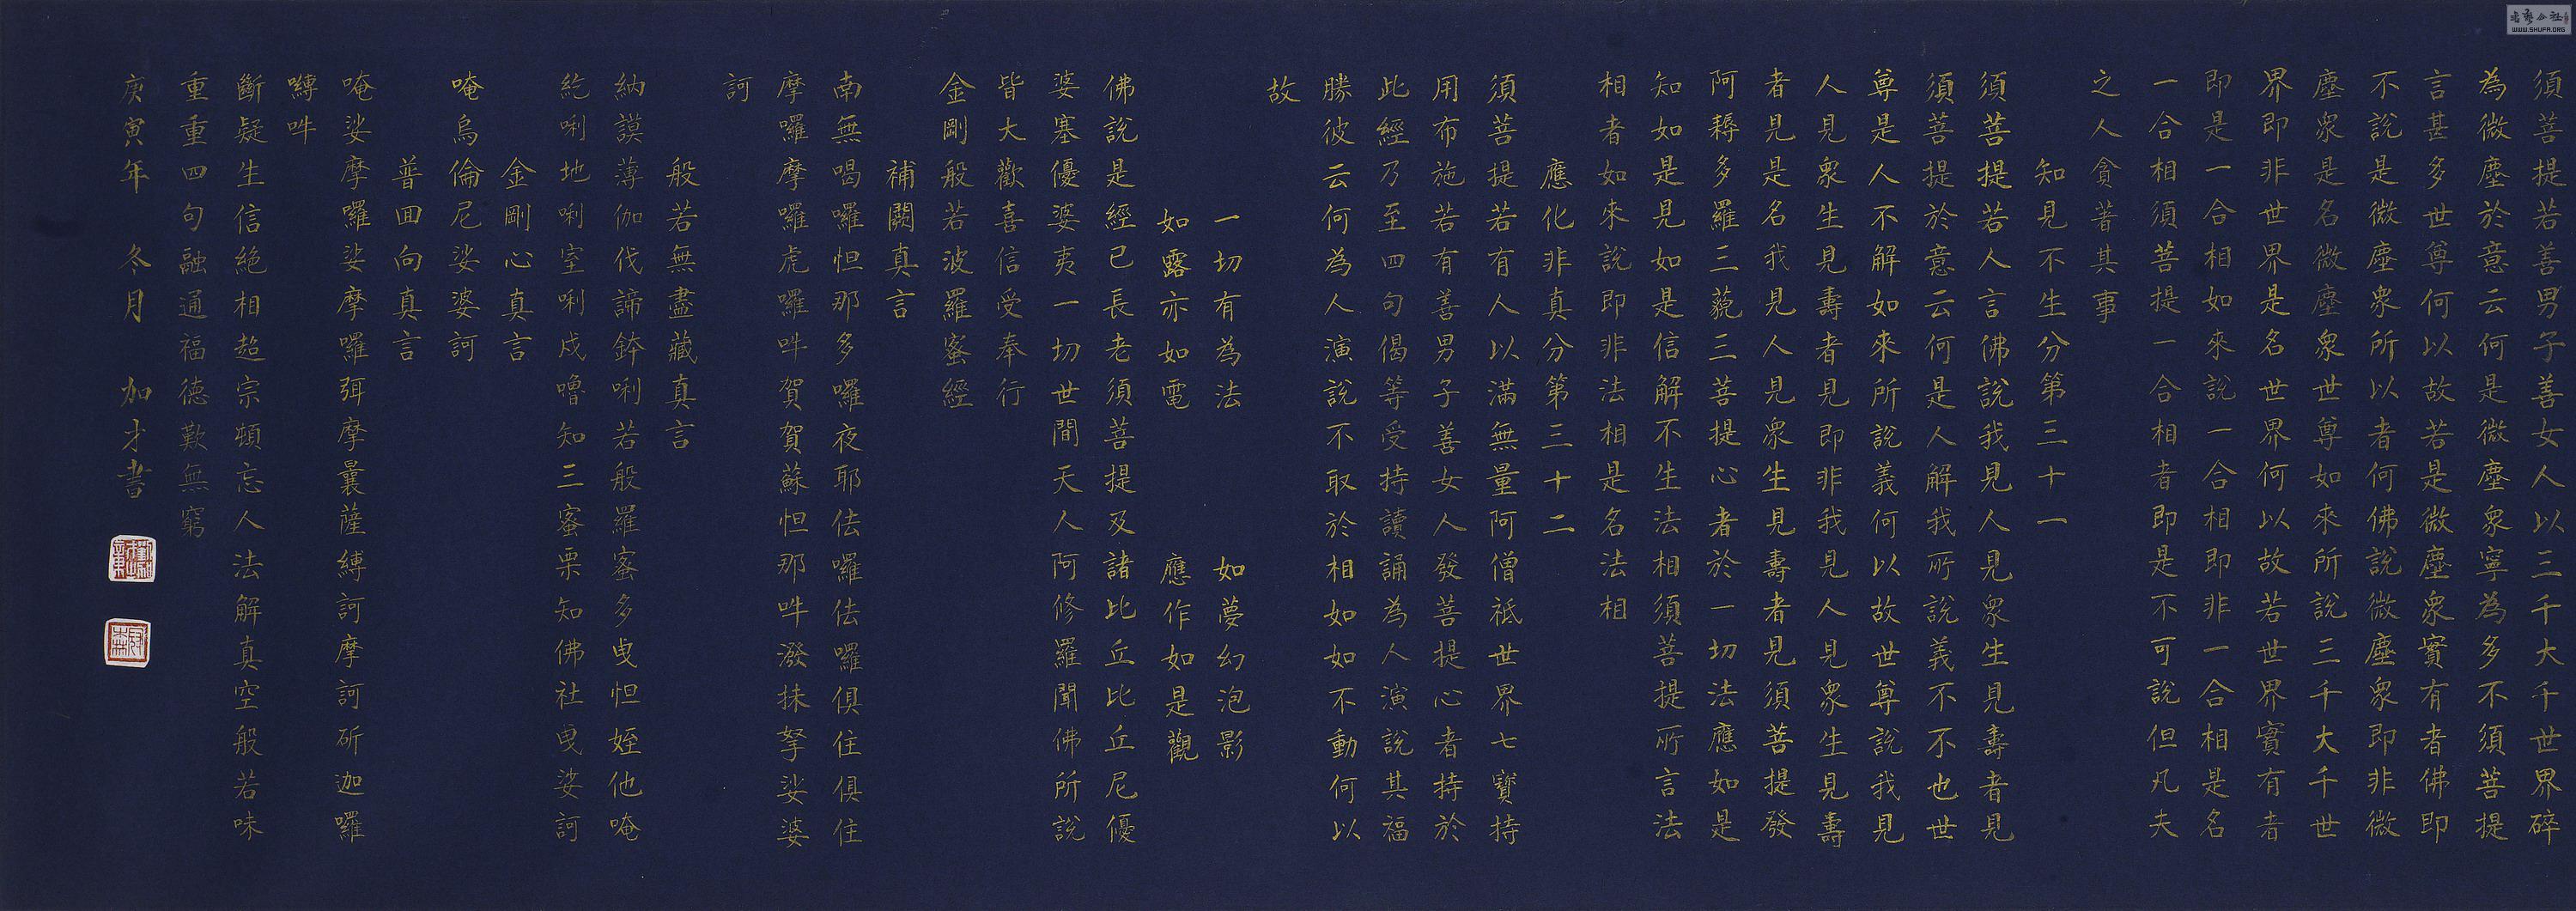 須菩提若善男子善女人以三千大千世界碎
為微塵於意云何是微塵眾寧為多不須菩提
言甚多世尊何以故若是微塵眾實有者佛即
不說是微塵眾所以者何佛說微塵眾即非微
塵眾是名微塵眾世尊如來所說三千大千世
界即非世界是名世界何以故若世界實有者
即是一合相如來說一合相即非一合相是名
一合相須菩提一合相者即是不可說但凡夫
之人貪著其事
知見不生分第三十一
須菩提若人言佛說我見人見眾生見壽者見
須菩提於意云何是人解我所說義不不也世
尊是人不解如來所說義何以故世尊說我見
人見眾生見壽者見即非我見人見眾生見壽
者見是名我見人見眾生見壽者見須菩提發
阿耨多羅三藐三菩提心者於一切法應如是
知如是見如是信解不生法相須菩提所言法
相者如來說即非法相是名法相
應化非真分第三十二
須菩提若有人以滿無量阿僧祇世界七寶持
用布施若有善男子善女人發菩提心者持於
此經乃至四句偈等受持讀誦為人演說其福
勝彼云何為人演說不取於相如如不動何以
故
一切有為法 如夢幻泡影
如露亦如電 應作如是觀
佛說是經已長老須菩提及諸比丘比丘尼優
婆塞優婆夷一切世間天人阿修羅聞佛所說
皆大歡喜信受奉行
金剛般若波羅蜜經
補闕真言
南無喝囉怛那多囉夜耶佉囉佉囉俱住俱住
摩囉摩囉虎囉吽賀賀蘇怛那吽潑抹拏娑婆
訶
般若無盡藏真言
納謨薄伽伐諦鉢唎若般羅蜜多曳怛姪他唵
紇唎地唎室唎戍嚕知三蜜栗知佛社曳娑訶
金剛心真言
唵烏倫尼娑婆訶
普回向真言
唵娑摩囉娑摩囉弭摩曩薩縛訶摩訶斫迦囉
嚩吽
斷疑生信絕相超宗頓忘人法解真空般若味
重重四句融通福德歎無窮
庚寅年 冬月 加才書
書藝公社
WWW.SHUFA.ORG